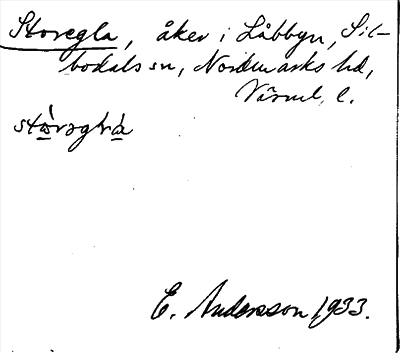 Storegla, åker i Låbbyn, Sil-
bodals sn, Nordmarks hd,
Värml. l.
E. Andersson 1933.